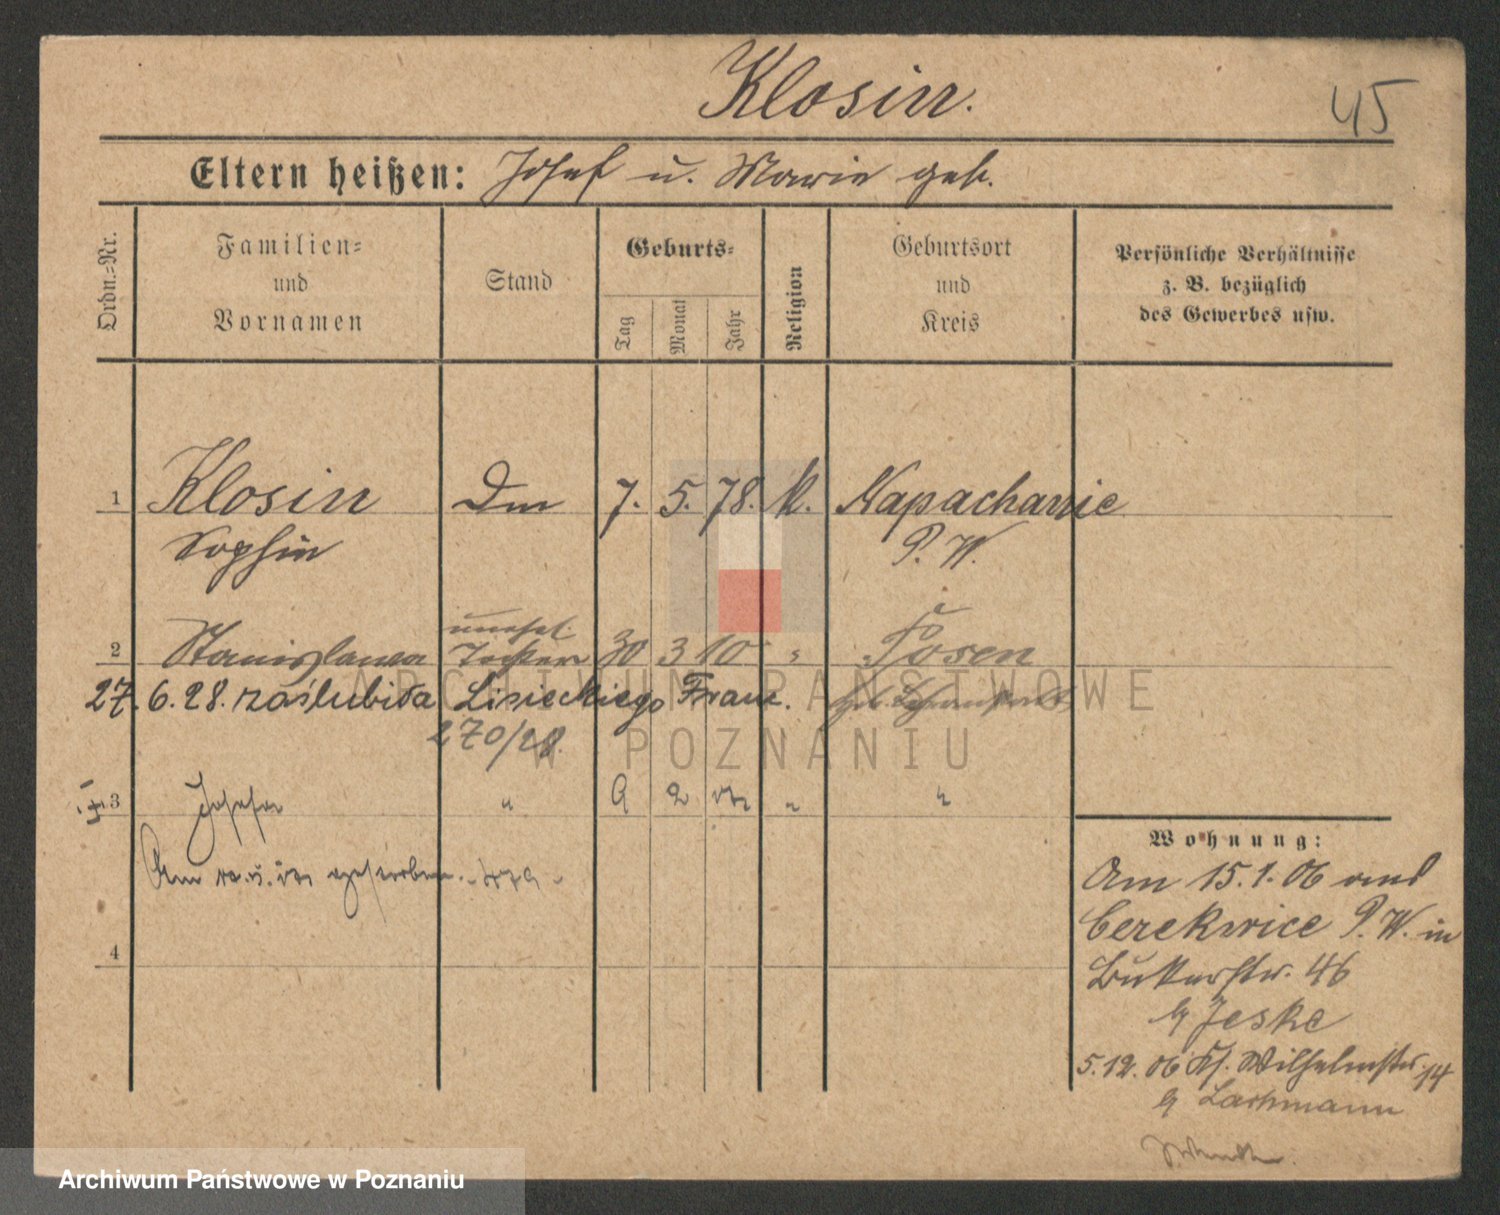 Klosin.
45
Eltern heißen: Josef u. Marie geb.
Ordn.-Nr.
Familien-
und
Vornamen
Stand
Geburts-
Tag
Monat
Jahr
Religion
Geburtsort
und
Kreis
Persönliche Verhältnisse
z. B. bezüglich
des Gewerbes usw.
1 Klosin 7. 5. 78. k. Napachanie
Sophie P. W.
unehel.
2 Stanislawa Tochter 30 3 10 " Posen
27. 6. 28. zaślubiła Lisieckiego Franc.
270/28.
3 Josefa " 9 2 "
Am gestorben.
4
Wohnung:
Am 15.1.06 aus
Cerekwice P. W. in
Butterstr. 46
b/ Jeske
5.12.06 Kl. Wilhelmstr. 14
b/ Lachmann
ARCHIWUM PAŃSTWOWE
W POZNANIU
Archiwum Państwowe w Poznaniu